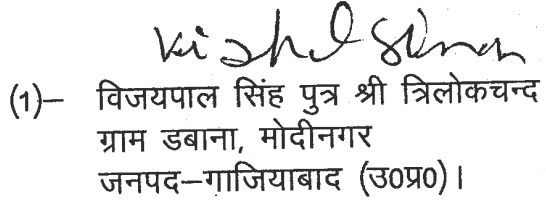 (1)– विजयपाल सिंह पुत्र श्री त्रिलोकचन्द
ग्राम डबाना, मोदीनगर
जनपद–गाजियाबाद (उ०प्र०)।